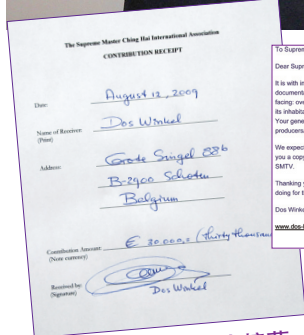 The Supreme Master Ching Hai International Association
CONTRIBUTION RECEIPT
Date: August 12, 2009
Name of Receiver: Dos Winkel
(Print)
Address: Grote Singel 88b
B-2900 Schoten
Belgium
Contribution Amount: € 30.000,= (thirty thousan
(Note currency)
Received by:
(Signature)
Dos Winkel
To Suprem
Dear Supr
It is with i
documenta
facing: ove
its inhabita
Your gene
producers
We expec
you a copy
SMTV.
Thanking y
doing for t
Dos Winke
www.dos-